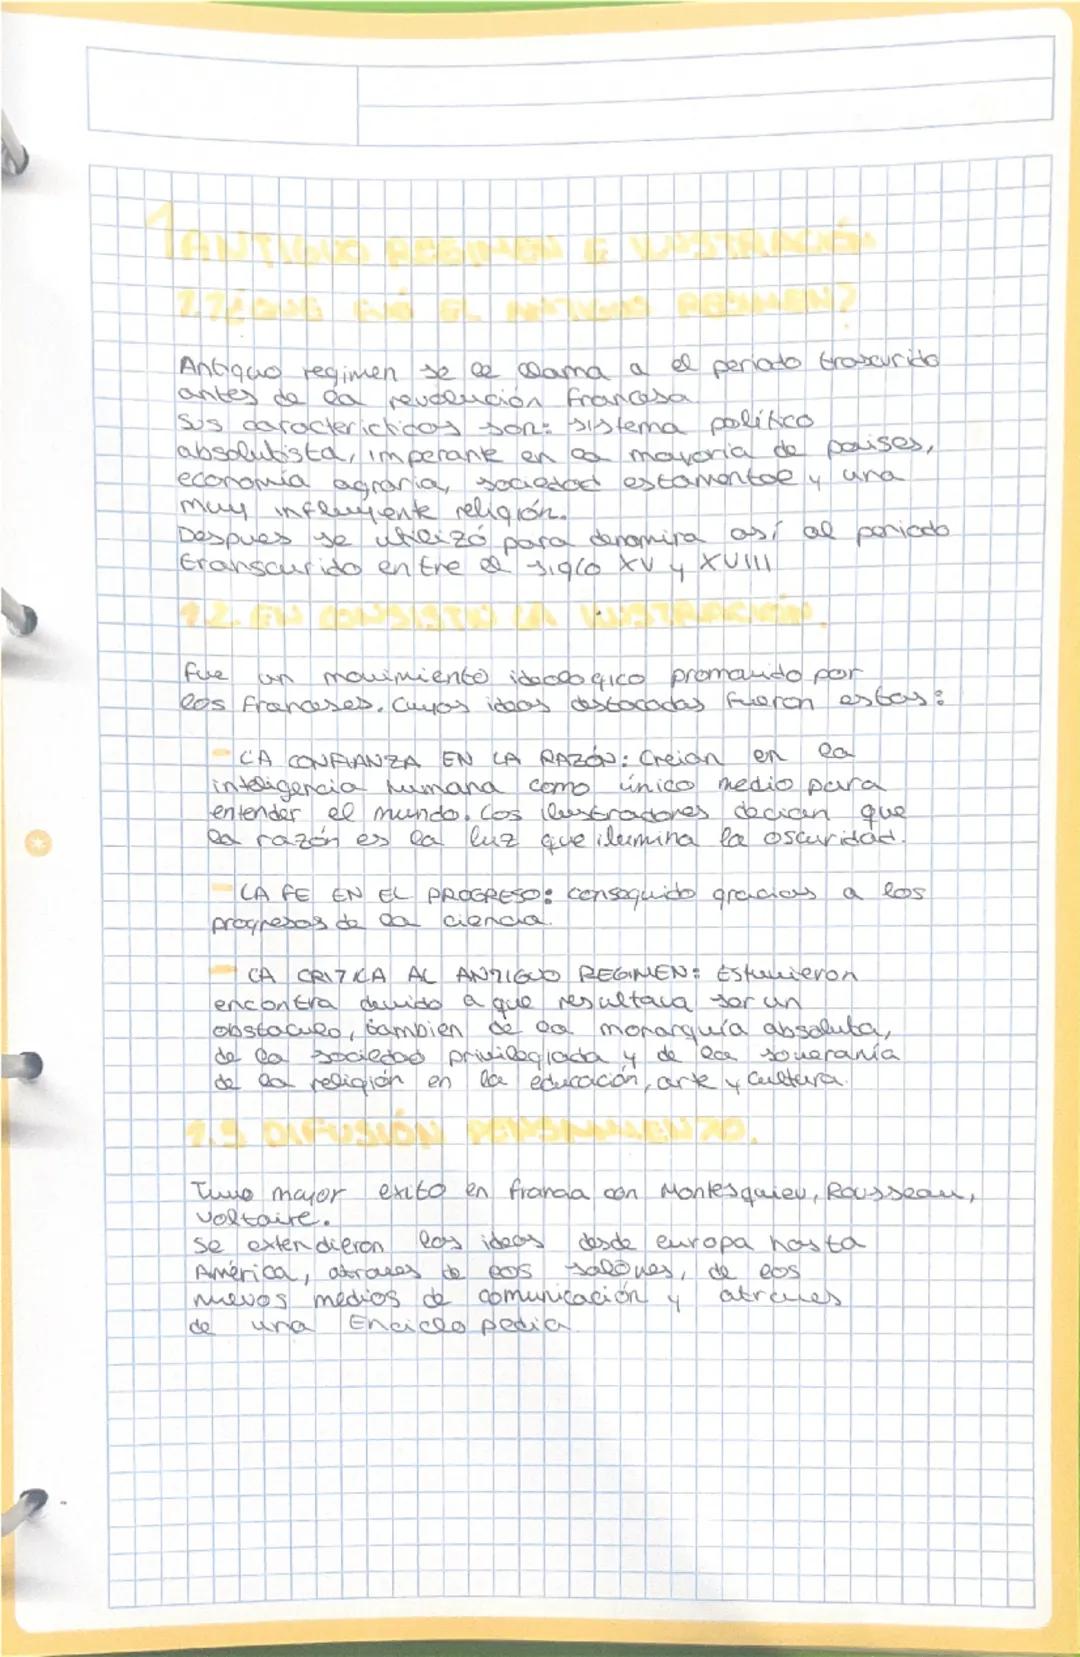 1 ANTIGUO REGIMEN E ILUSTRACIÓN
Antiguo regimen se le llama a el periodo trascurido
antes de la revolución francesa
Sus caracterícticas son: sistema político
absolutista, imperante en la mayoria de paises,
economía agraria, sociedad estamental y una
muy influyente religión.
Despues se utilizó para denomira así al periodo
transcurido entre el siglo XV y XVIII
fue un movimiento ideologico promovido por
los franceses. Cuyas ideas destacadas fueron estas:
- LA CONFIANZA EN LA RAZÓN: Creian en la
inteligencia humana como único medio para
entender el mundo. Los ilustradores decian que
la razón es la luz que ilumina la oscuridad.
- LA FE EN EL PROGRESO: conseguido gracias a los
progresos de la ciencia.
- LA CRITICA AL ANTIGUO REGIMEN: Estuvieron
encontra devido a que resultava ser un
obstaculo, tambien de la monarquía absoluta,
de la sociedad privilegiada y de la soveranía
de la religión en la educación, arte y cultura.
Tuvo mayor exito en francia con Montesquieu, Rousseau,
voltaire.
se extendieron las ideas desde europa hasta
América, atraves de los salones, de los
nuevos medios de comunicación y atraves
de una Enciclopedia